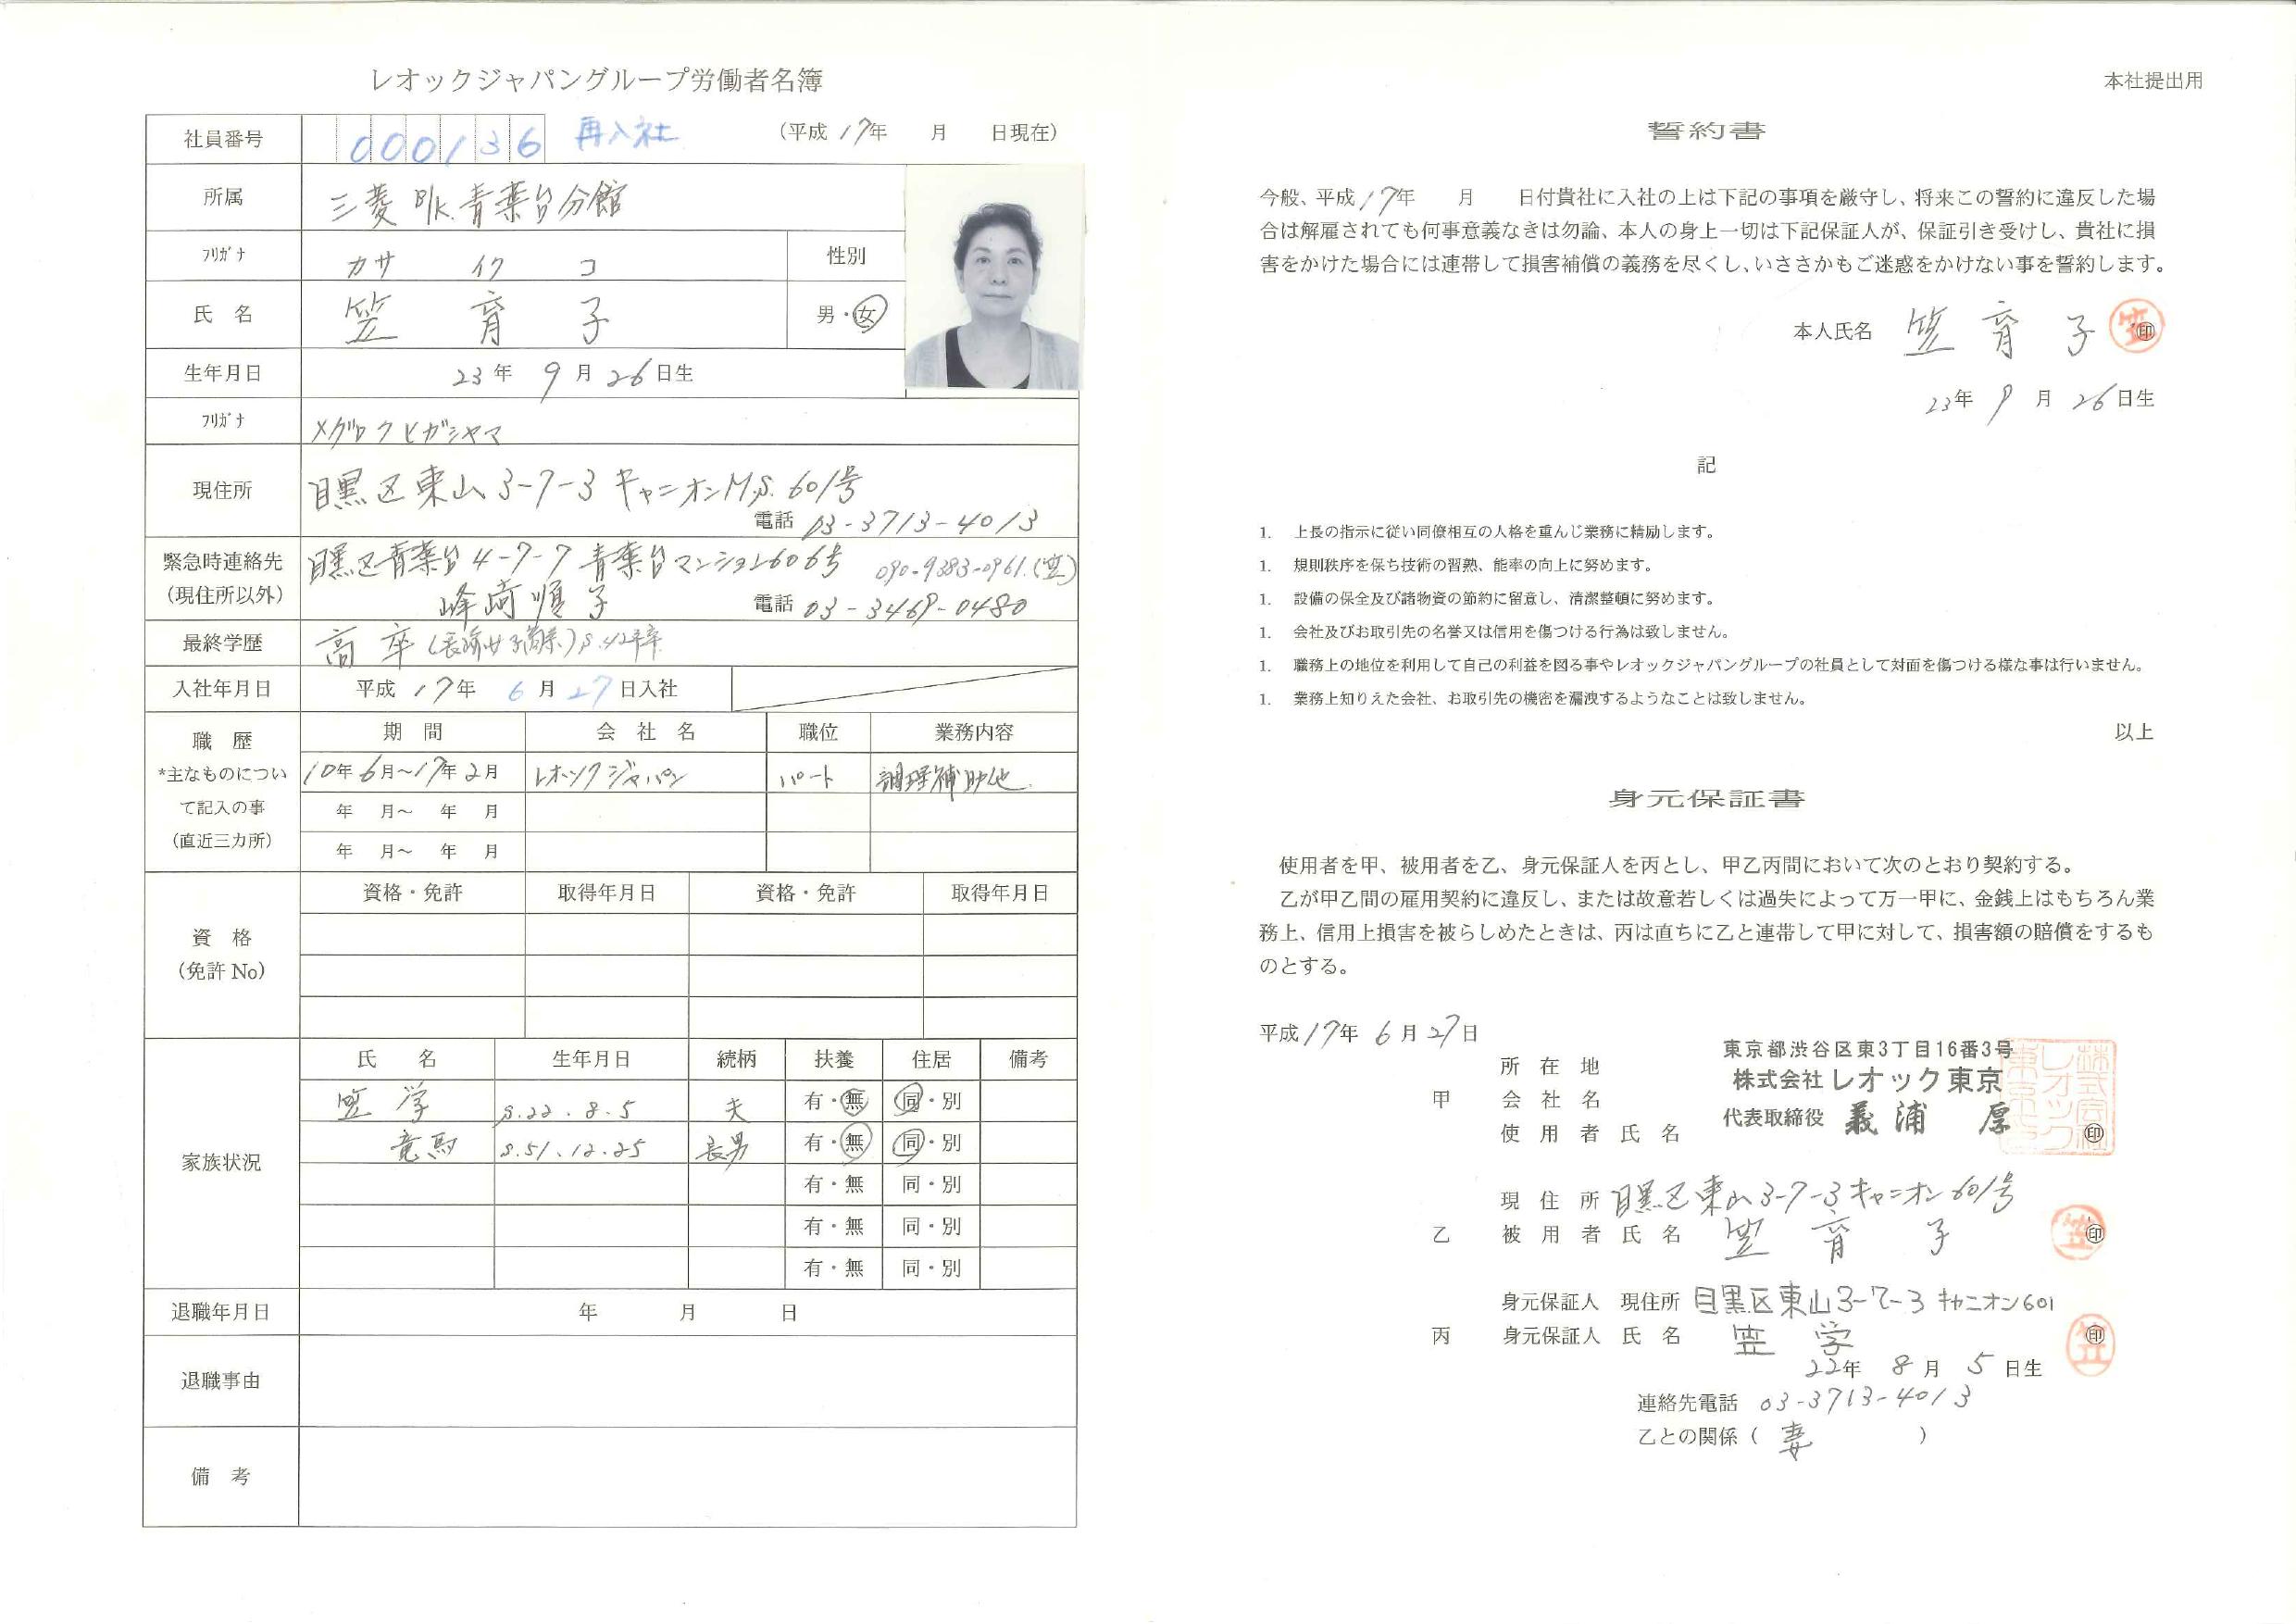 レオックジャパングループ労働者名簿
社員番号 000136 再入社 (平成 17年 月 日現在)
所属 三菱BK.青葉台分館
フリガナ カサ イクコ 性別
氏 名 笠 育子 男・女
生年月日 23年 9月 26日生
フリガナ メグロクヒガシヤマ
現住所 目黒区東山3-7-3 キャニオンM.S. 601号
電話 03-3713-4013
緊急時連絡先 目黒区青葉台4-7-7 青葉台マンション606号 090-9383-0961.(笠)
(現住所以外) 峰崎順子 電話 03-3469-0480
最終学歴 高卒 S.42年卒
入社年月日 平成 17年 6月 27日入社
職 歴 期 間 会 社 名 職位 業務内容
*主なものについ 10年6月~17年2月 レオックジャパン パート 調理補助他.
て記入の事 年 月~ 年 月
(直近三カ所) 年 月~ 年 月
資格・免許 取得年月日 資格・免許 取得年月日
資 格
(免許 No)
氏 名 生年月日 続柄 扶養 住居 備考
笠 学 S.22.8.5 夫 有・無 同・別
竜馬 S.51.12.25 長男 有・無 同・別
家族状況 有・無 同・別
有・無 同・別
有・無 同・別
退職年月日 年 月 日
退職事由
備 考
本社提出用
誓約書
今般、平成17年 月 日付貴社に入社の上は下記の事項を厳守し、将来この誓約に違反した場
合は解雇されても何事意義なきは勿論、本人の身上一切は下記保証人が、保証引き受けし、貴社に損
害をかけた場合には連帯して損害補償の義務を尽くし、いささかもご迷惑をかけない事を誓約します。
本人氏名 笠 育子 笠 印
23年 9月 26日生
記
1. 上長の指示に従い同僚相互の人格を重んじ業務に精励します。
1. 規則秩序を保ち技術の習熟、能率の向上に努めます。
1. 設備の保全及び諸物資の節約に留意し、清潔整頓に努めます。
1. 会社及びお取引先の名誉又は信用を傷つける行為は致しません。
1. 職務上の地位を利用して自己の利益を図る事やレオックジャパングループの社員として対面を傷つける様な事は行いません。
1. 業務上知りえた会社、お取引先の機密を漏洩するようなことは致しません。
以上
身元保証書
使用者を甲、被用者を乙、身元保証人を丙とし、甲乙丙間において次のとおり契約する。
乙が甲乙間の雇用契約に違反し、または故意若しくは過失によって万一甲に、金銭上はもちろん業
務上、信用上損害を被らしめたときは、丙は直ちに乙と連帯して甲に対して、損害額の賠償をするも
のとする。
平成17年 6月27日
所 在 地 東京都渋谷区東3丁目16番3号
甲 会 社 名 株式会社 レオック東京
使 用 者 氏 名 代表取締役 義浦 厚 印
現 住 所 目黒区東山3-7-3キャニオン601号
乙 被 用 者 氏 名 笠 育子 笠 印
身元保証人 現住所 目黒区東山3-7-3 キャニオン601
丙 身元保証人 氏 名 笠 学 笠 印
22年 8月 5日生
連絡先電話 03-3713-4013
乙との関係( 妻 )